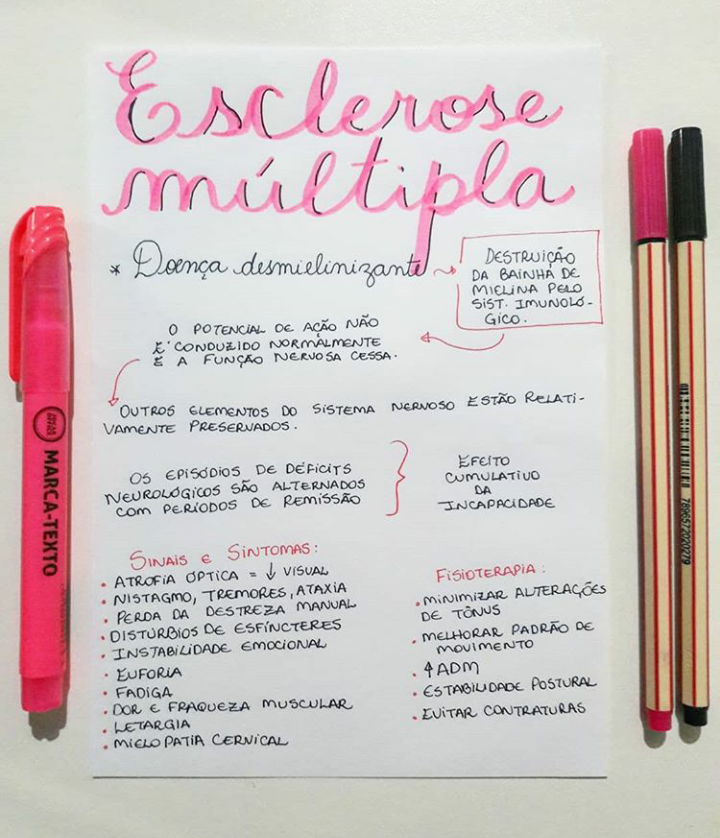 Esclerose
múltipla
* Doença desmielinizante
DESTRUIÇÃO
DA BAINHA DE
MIELINA PELO
SIST. IMUNOLÓ-
GICO.
O POTENCIAL DE AÇÃO NÃO
É CONDUZIDO NORMALMENTE
E A FUNÇÃO NERVOSA CESSA.
OUTROS ELEMENTOS DO SISTEMA NERVOSO ESTÃO RELATI-
VAMENTE PRESERVADOS.
OS EPISÓDIOS DE DÉFICITS
NEUROLÓGICOS SÃO ALTERNADOS
COM PERÍODOS DE REMISSÃO
EFEITO
CUMULATIVO
DA
INCAPACIDADE
SINAIS E SINTOMAS:
• ATROFIA ÓPTICA = ↓ VISUAL
• NISTAGMO, TREMORES, ATAXIA
• PERDA DA DESTREZA MANUAL
• DISTÚRBIOS DE ESFÍNCTERES
• INSTABILIDADE EMOCIONAL
• EUFORIA
• FADIGA
• DOR E FRAQUEZA MUSCULAR
• LETARGIA
• MIELOPATIA CERVICAL
FISIOTERAPIA:
• MINIMIZAR ALTERAÇÕES
DE TÔNUS
• MELHORAR PADRÃO DE
MOVIMENTO
• ↑ ADM
• ESTABILIDADE POSTURAL
• EVITAR CONTRATURAS
MARCA-TEXTO